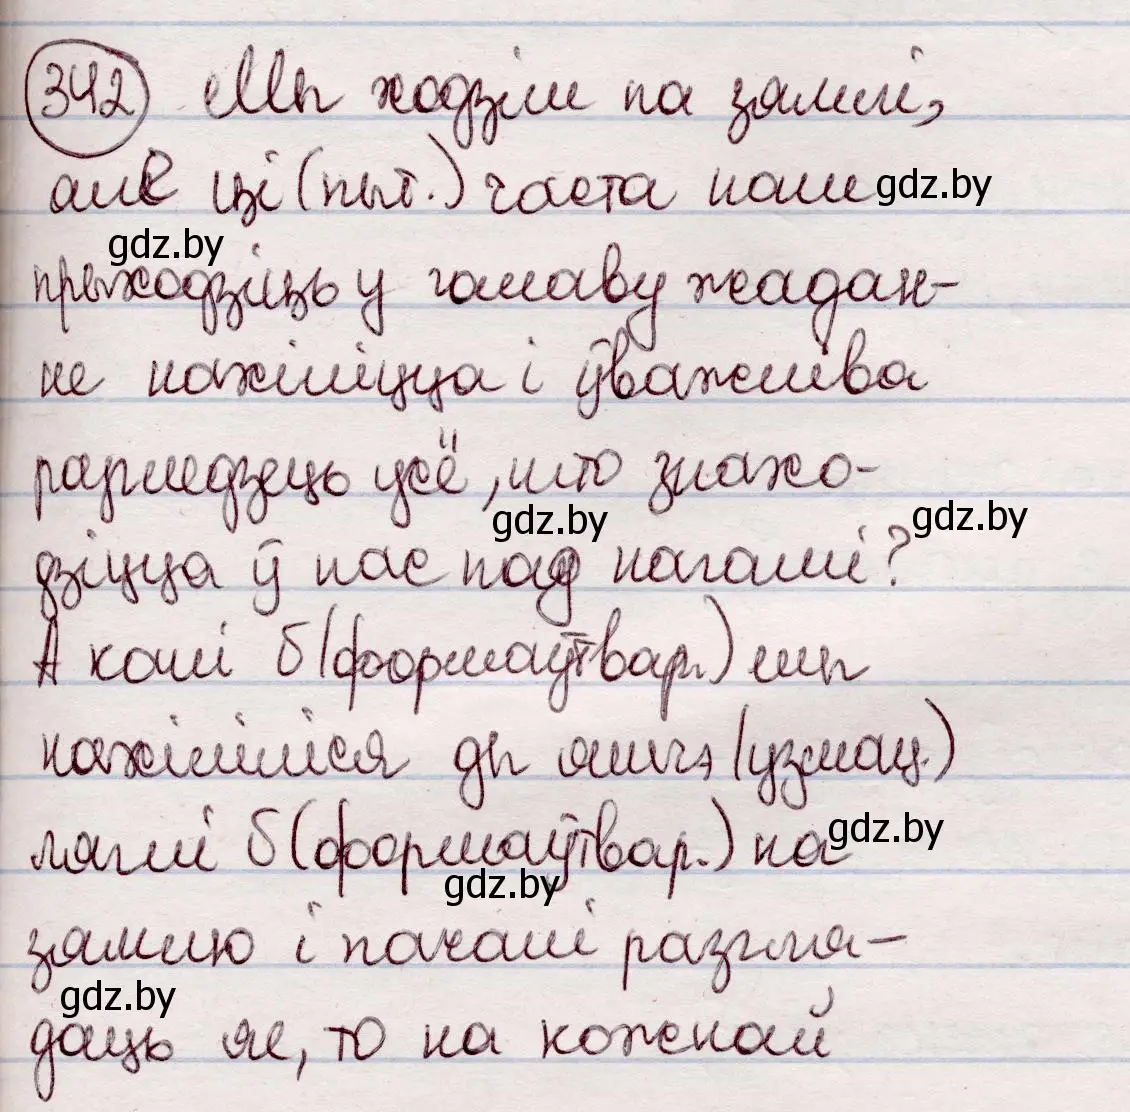 342 Мы ходзім па зямлі,
але ці (пыт.) часта нам
gdz.by
gdz.by
прыходзіць у галаву жадан-
не нахіліцца і ўважліва
разгледзець усё, што знахо-
gdz.by
gdz.by
дзіцца ў нас пад нагамі?
А калі б (формаўтвар.) мы
нахіліліся ды яшчэ (узмац.)
ляглі б (формаўтвар.) на
gdz.by
gdz.by
зямлю і пачалі разгля-
gdz.by
даць яе, то на кожнай